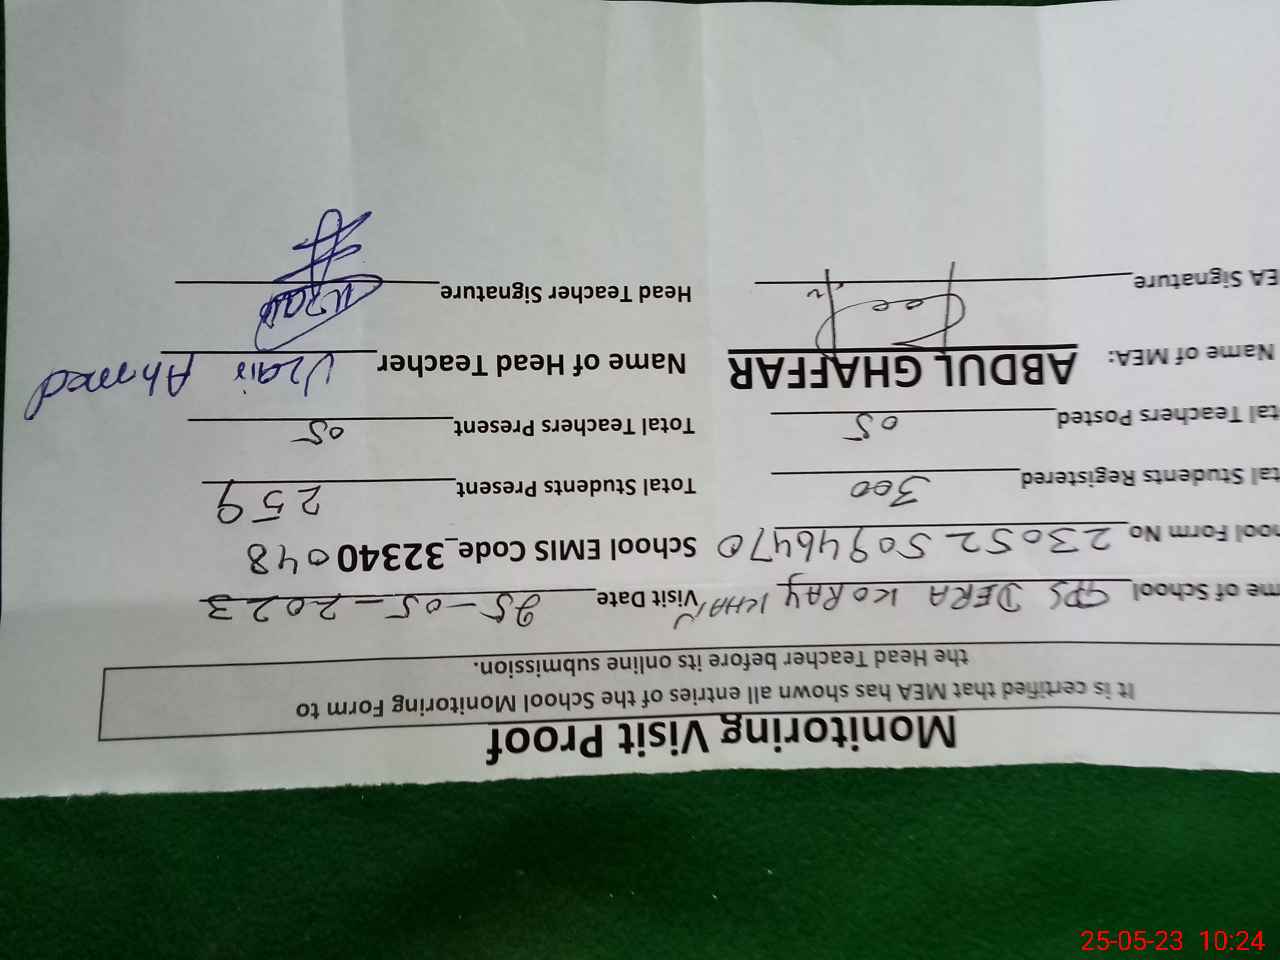 Monitoring Visit Proof
It is certified that MEA has shown all entries of the School Monitoring Form to
the Head Teacher before its online submission.
me of School GPS DERA KORAY KHAN Visit Date 25-05-2023
hool Form No 2305250946470 School EMIS Code_32340048
tal Students Registered 300 Total Students Present 259
tal Teachers Posted 05 Total Teachers Present 05
Name of MEA: ABDUL GHAFFAR Name of Head Teacher Uzair Ahmed
EA Signature Head Teacher Signature Uzair
25-05-23 10:24